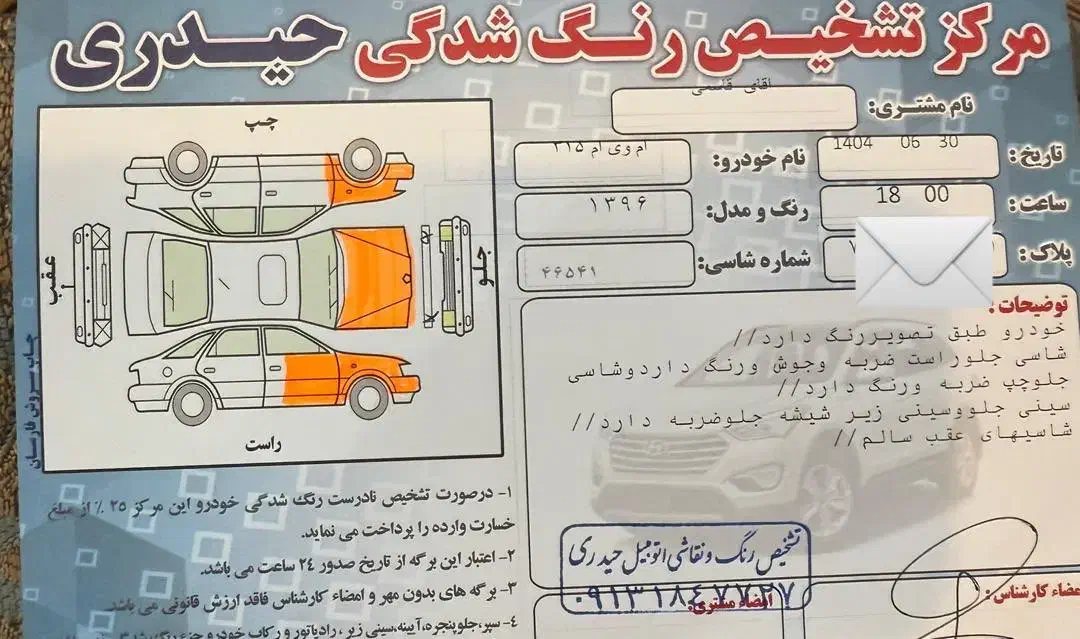 مرکز تشخیص رنگ شدگی حیدری
نام مشتری: اقای قاسمی
تاریخ: 1404 06 30
نام خودرو: ام وی ام ۳۱۵
ساعت: 18 00
رنگ و مدل: ۱۳۹۶
پلاک:
شماره شاسی: ۴۶۵۴۱
توضیحات:
خودرو طبق تصویررنگ دارد//
شاسی جلوراست ضربه وجوش ورنگ داردوشاسی
جلوچپ ضربه ورنگ دارد//
سینی جلووسینی زیر شیشه جلوضربه دارد//
شاسیهای عقب سالم//
چپ
عقب
جلو
راست
چاپ سروش فارسان
۱- درصورت تشخیص نادرست رنگ شدگی خودرو این مرکز ۲۵ ٪ از مبلغ
خسارت وارده را پرداخت می نماید.
۲- اعتبار این برگه از تاریخ صدور ۲۴ ساعت می باشد.
۳- برگه های بدون مهر و امضاء کارشناس فاقد ارزش قانونی می باشد.
۴- سپر،جلوپنجره،آیینه،سینی زیر، رادیاتور و رکاب خودرو جزء رنگ شد
تشخیص رنگ و نقاشی اتومبیل حیدری
۰۹۱۳۱۸۴۷۷۲۷
امضاء مشتری:
امضاء کارشناس: